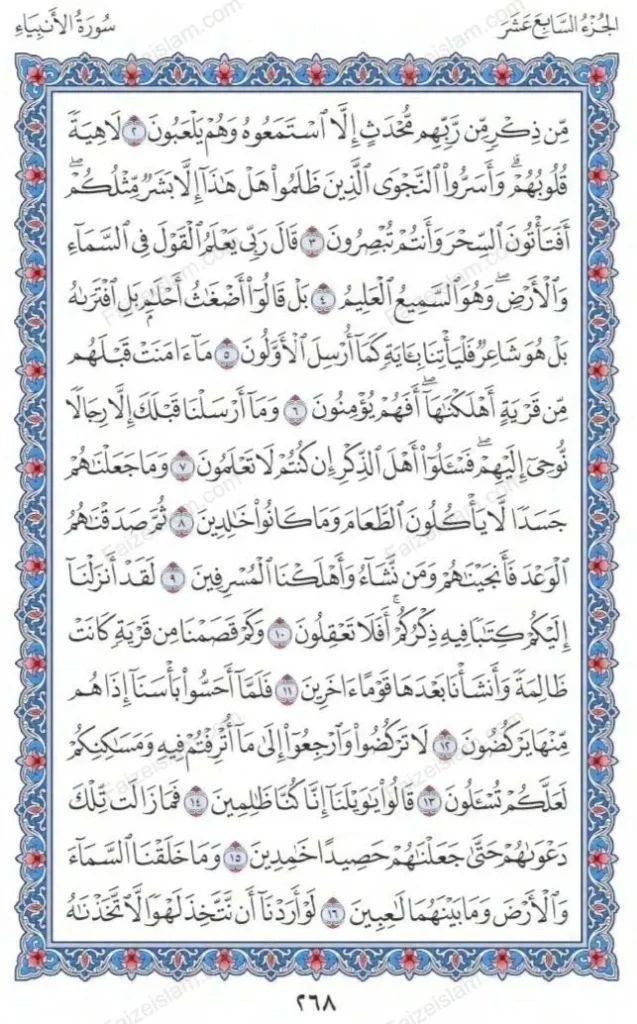 سُورَةُ الأَنبِيَاءِ
الجُزْءُ السَّابِعَ عَشَرَ
مِّن ذِكْرٍ مِّن رَّبِّهِم مُّحْدَثٍ إِلَّا ٱسْتَمَعُوهُ وَهُمْ يَلْعَبُونَ ٢ لَاهِيَةً
قُلُوبُهُمْ ۗ وَأَسَرُّوا۟ ٱلنَّجْوَى ٱلَّذِينَ ظَلَمُوا۟ هَلْ هَـٰذَآ إِلَّا بَشَرٌ مِّثْلُكُمْ ۖ
أَفَتَأْتُونَ ٱلسِّحْرَ وَأَنتُمْ تُبْصِرُونَ ٣ قَالَ رَبِّى يَعْلَمُ ٱلْقَوْلَ فِى ٱلسَّمَآءِ
وَٱلْأَرْضِ ۖ وَهُوَ ٱلسَّمِيعُ ٱلْعَلِيمُ ٤ بَلْ قَالُوٓا۟ أَضْغَـٰثُ أَحْلَـٰمٍۭ بَلِ ٱفْتَرَىٰهُ
بَلْ هُوَ شَاعِرٌ فَلْيَأْتِنَا بِـَٔايَةٍ كَمَآ أُرْسِلَ ٱلْأَوَّلُونَ ٥ مَآ ءَامَنَتْ قَبْلَهُم
مِّن قَرْيَةٍ أَهْلَكْنَـٰهَآ ۖ أَفَهُمْ يُؤْمِنُونَ ٦ وَمَآ أَرْسَلْنَا قَبْلَكَ إِلَّا رِجَالًا
نُّوحِىٓ إِلَيْهِمْ ۖ فَسْـَٔلُوٓا۟ أَهْلَ ٱلذِّكْرِ إِن كُنتُمْ لَا تَعْلَمُونَ ٧ وَمَا جَعَلْنَـٰهُمْ
جَسَدًا لَّا يَأْكُلُونَ ٱلطَّعَامَ وَمَا كَانُوا۟ خَـٰلِدِينَ ٨ ثُمَّ صَدَقْنَـٰهُمُ
ٱلْوَعْدَ فَأَنجَيْنَـٰهُمْ وَمَن نَّشَآءُ وَأَهْلَكْنَا ٱلْمُسْرِفِينَ ٩ لَقَدْ أَنزَلْنَآ
إِلَيْكُمْ كِتَـٰبًا فِيهِ ذِكْرُكُمْ ۖ أَفَلَا تَعْقِلُونَ ١٠ وَكَمْ قَصَمْنَا مِن قَرْيَةٍ كَانَتْ
ظَالِمَةً وَأَنشَأْنَا بَعْدَهَا قَوْمًا ءَاخَرِينَ ١١ فَلَمَّآ أَحَسُّوا۟ بَأْسَنَآ إِذَا هُم
مِّنْهَا يَرْكُضُونَ ١٢ لَا تَرْكُضُوا۟ وَٱرْجِعُوٓا۟ إِلَىٰ مَآ أُتْرِفْتُمْ فِيهِ وَمَسَـٰكِنِكُمْ
لَعَلَّكُمْ تُسْـَٔلُونَ ١٣ قَالُوا۟ يَـٰوَيْلَنَآ إِنَّا كُنَّا ظَـٰلِمِينَ ١٤ فَمَا زَالَت تِّلْكَ
دَعْوَىٰهُمْ حَتَّىٰ جَعَلْنَـٰهُمْ حَصِيدًا خَـٰمِدِينَ ١٥ وَمَا خَلَقْنَا ٱلسَّمَآءَ
وَٱلْأَرْضَ وَمَا بَيْنَهُمَا لَـٰعِبِينَ ١٦ لَوْ أَرَدْنَآ أَن نَّتَّخِذَ لَهْوًا لَّٱتَّخَذْنَـٰهُ
٢٦٨
Faizeislam.com